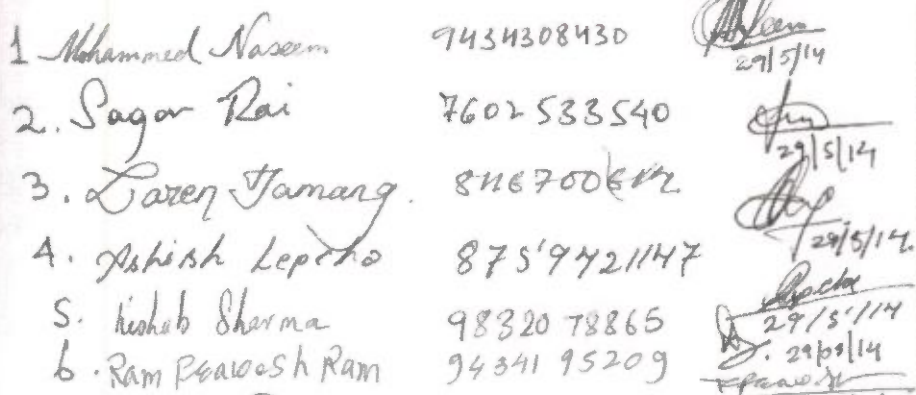 1 Mohammed Naseem 9434308430
29/5/14
2. Sagar Rai 7602533540
29/5/14
3. Tamang.
29/5/14
4. Ashish Lepcha 8759421147
29/5/14
5. Sharma 98320 78865
29/05/14
6. Ram Ram 94341 95209